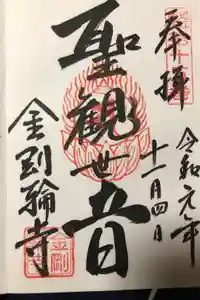 奉拝
令和元年
十一月四日
聖観世音
金剛輪寺